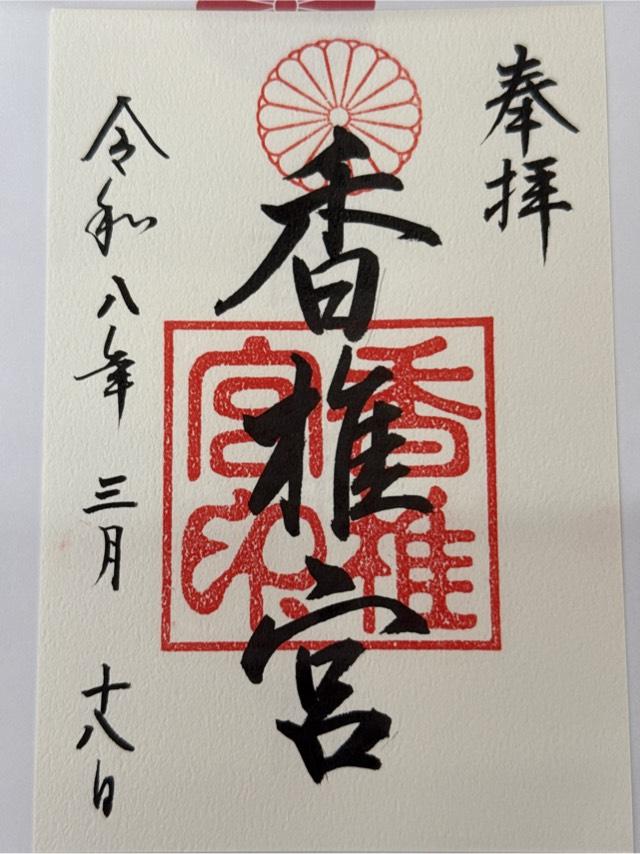 奉拝
香椎宮
香椎宮印
令和八年 三月 十八日